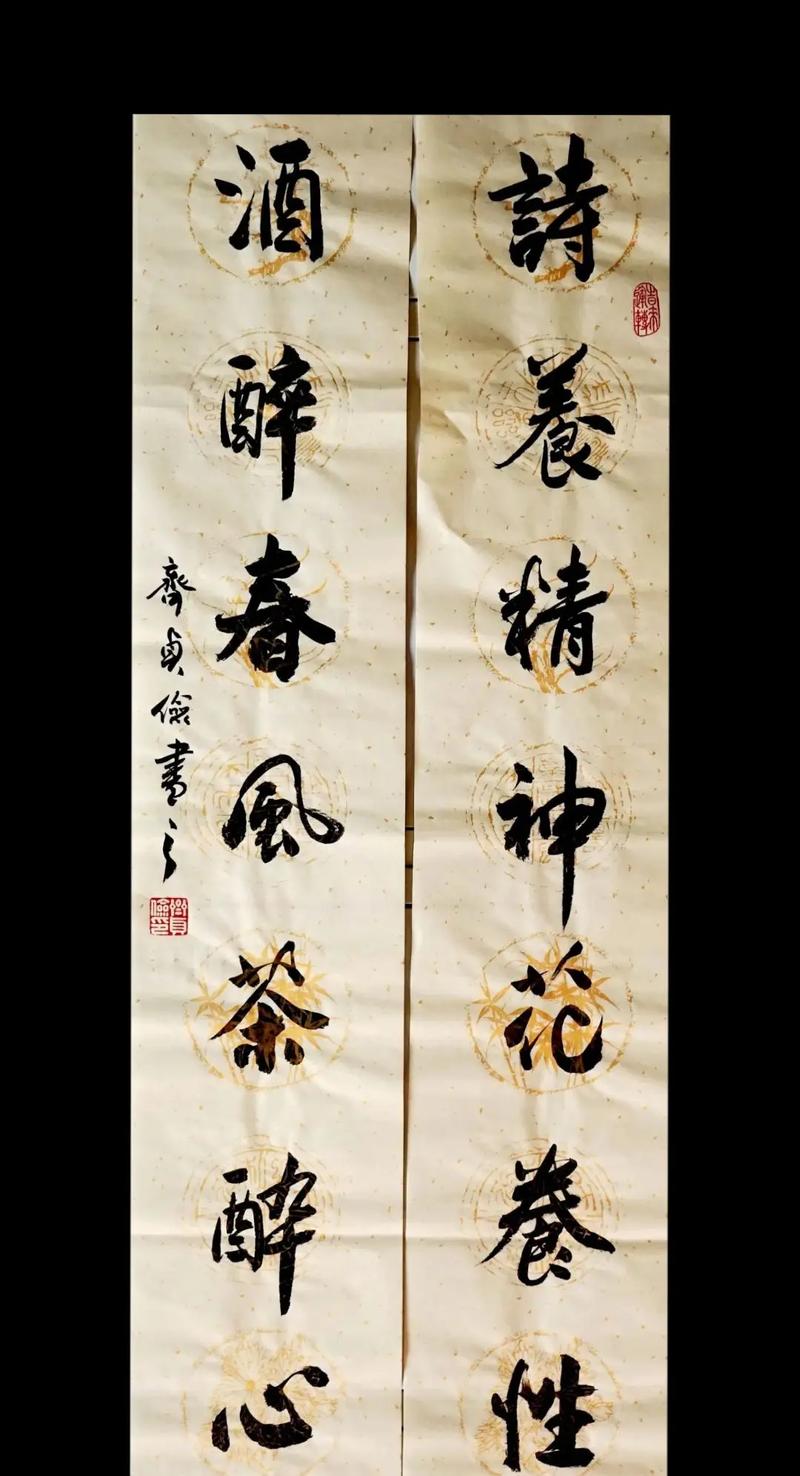 詩養精神花養性
酒醉春風茶醉心
齊貞儉書之